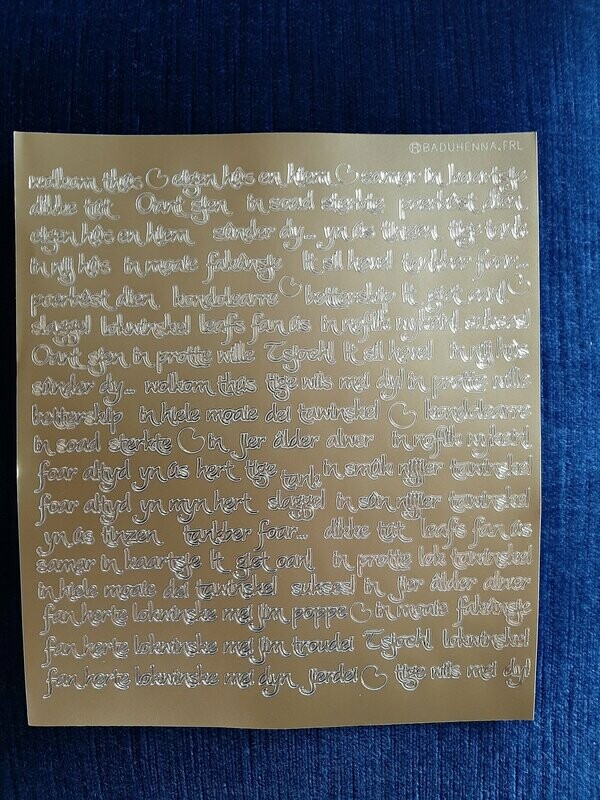 ®BADUHENNA.FRL
wolkom thús eigen hûs en hiem samar in kaartsje
dikke tút Oant sjen in soad sterkte poerbêst dien
eigen hûs en hiem sûnder dy... yn ús tinzen tige tank
in nij hûs in moaie fakânsje It sil heve! tankber foar...
poerbêst dien kondolearre betterskip It giet oan!
slagge! lokwinske! leafs fan ús in noflik wykein! sukses!
Oant sjen in protte wille Tsjoch! It sil heve! in nij hûs
sûnder dy... wolkom thús tige wiis mei dy! in protte wille
betterskip in hiele moaie dei tawinske! kondolearre
in soad sterkte in jier âlder alwer in noflik wykein!
foar altyd yn ús hert tige tank in smûk nijjier tawinske!
foar altyd yn myn hert slagge! in sûn nijjier tawinske!
yn ús tinzen tankber foar... dikke tút leafs fan ús
samar in kaartsje It giet oan! in protte lok tawinske!
in hiele moaie dei tawinske! sukses! in jier âlder alwer
fan herte lokwinske mei jim poppe in moaie fakânsje
fan herte lokwinske mei jim troudei Tsjoch! lokwinske!
fan herte lokwinske mei dyn jierdei tige wiis mei dy!